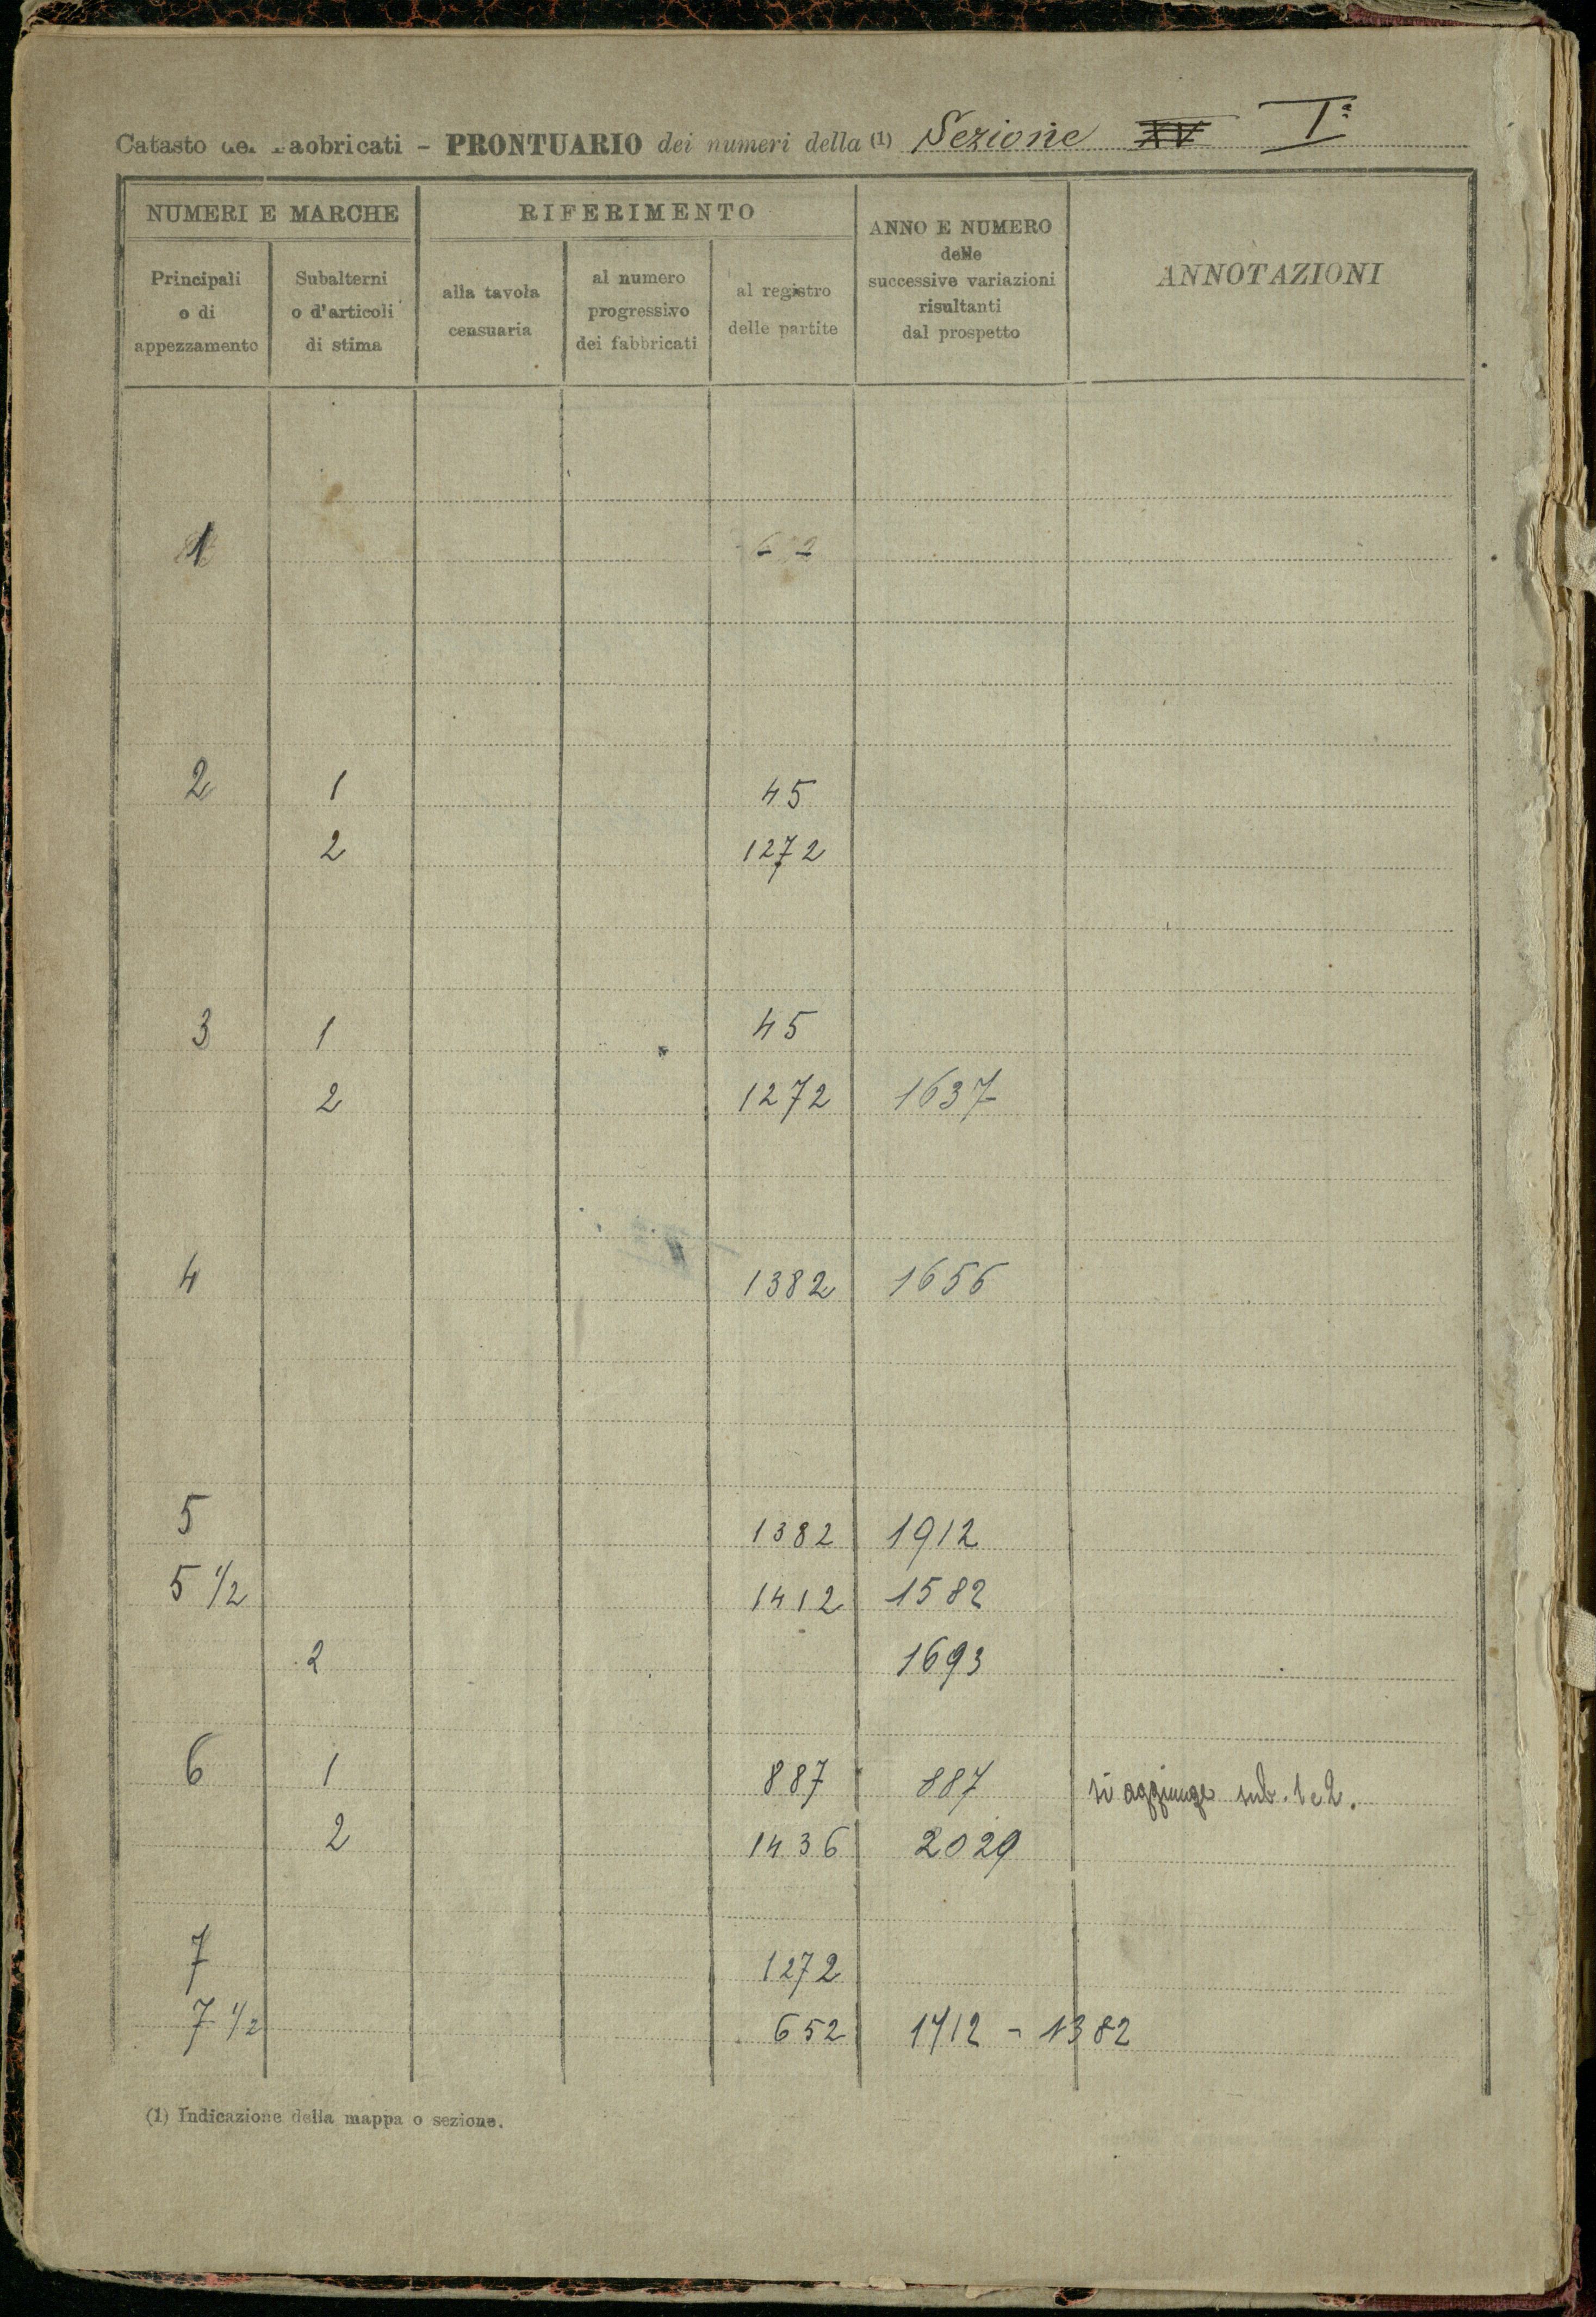 Catasto dei Fabbricati - PRONTUARIO dei numeri della (1) Sezione XV Iª
NUMERI E MARCHE
RIFERIMENTO
ANNO E NUMERO
delle
successive variazioni
risultanti
dal prospetto
ANNOTAZIONI
Principali
o di
appezzamento
Subalterni
o d'articoli
di stima
alla tavola
censuaria
al numero
progressivo
dei fabbricati
al registro
delle partite
1
2 1 45
2 1272
3 1 45
2 1272 1637
4 1382 1656
5 1382 1912
5 1/2 1412 1582
2 1693
6 1 887 887 si aggiunge sub. 1 e 2.
2 1436 2029
7 1272
7 1/2 652 1712 - 1382
(1) Indicazione della mappa o sezione.